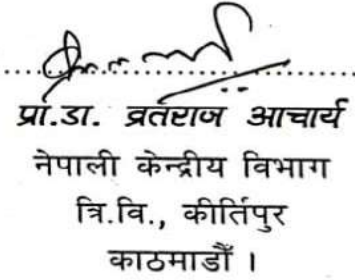 प्रा.डा. व्रतराज आचार्य
नेपाली केन्द्रीय विभाग
त्रि.वि., कीर्तिपुर
काठमाडौँ ।